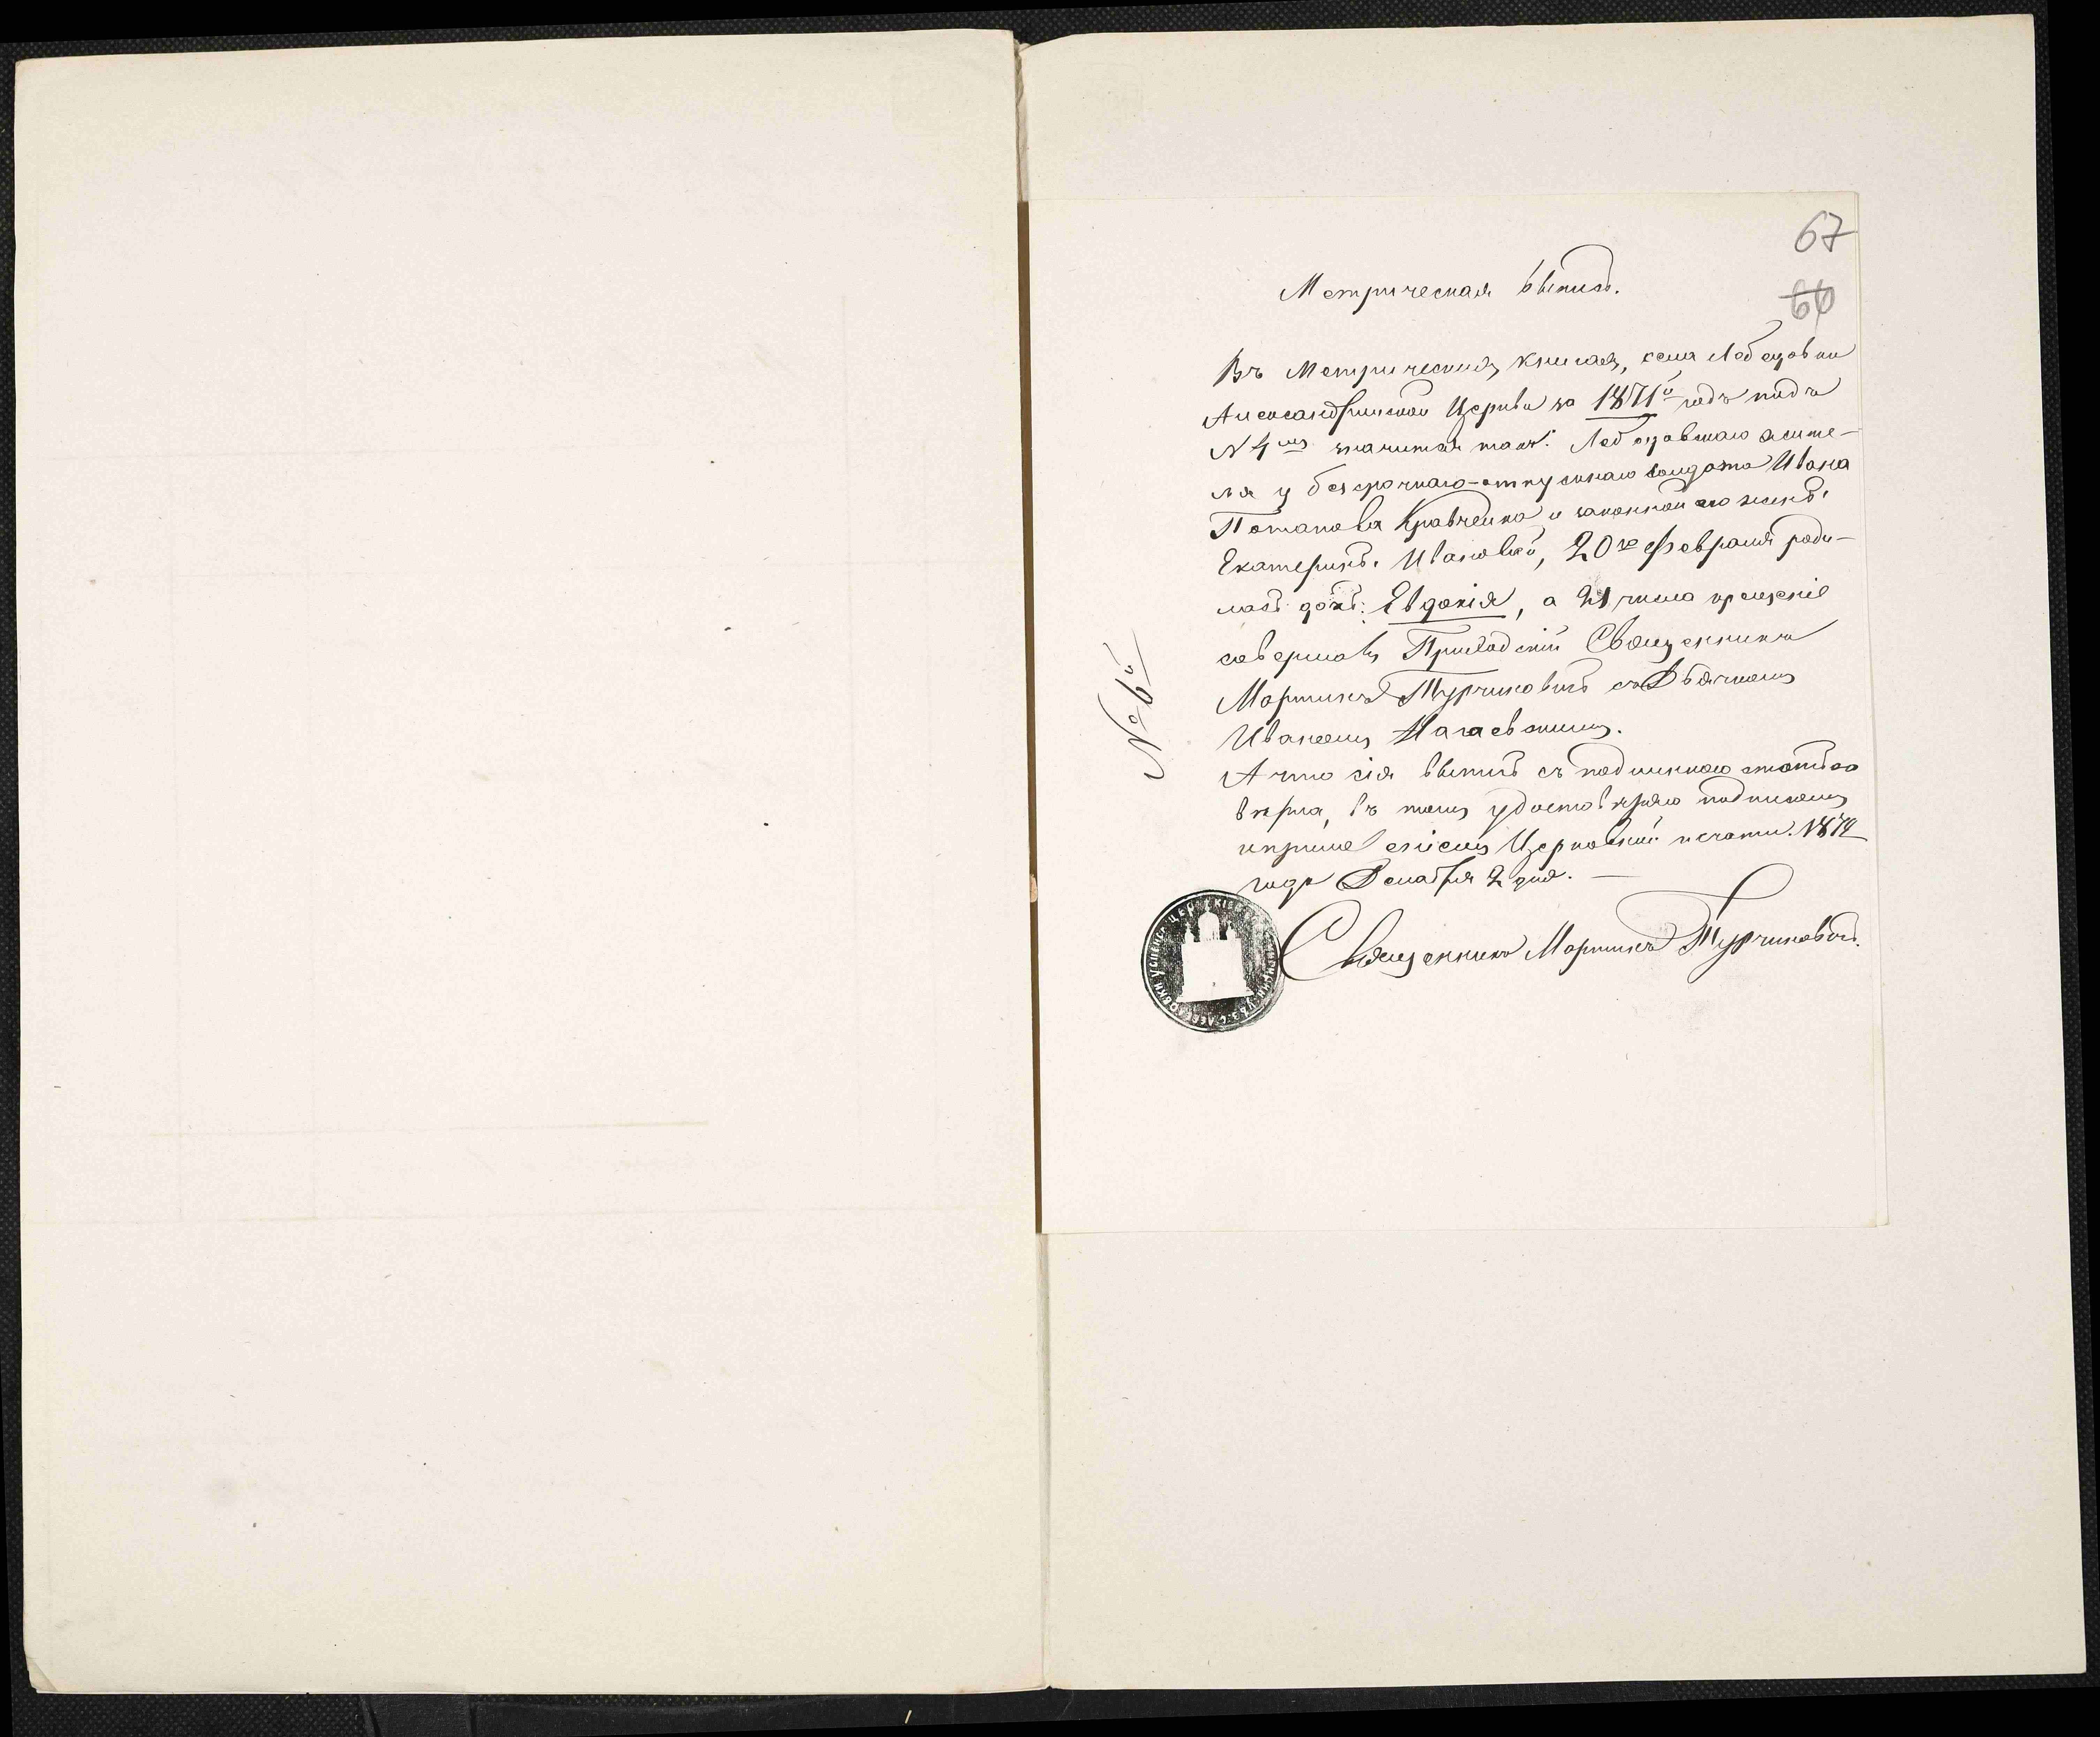 67
66
Метрическая выпись.
Въ Метрическихъ книгахъ, села Лебедовки
Александринской Церкви за 1871й годъ подъ
N 4мъ значится такъ: Лебедовскаго жите-
ля у безсрочно-отпускнаго солдата Ивана
Потапова Кравченка и законной его жены
Екатерины Ивановой, 20го Февраля роди-
лась дочь: Евдокія, а 21 числа крещеніе
совершалъ Приходскій Священникъ
Мартинъ Турчиновичъ съ Дьячкомъ
Иваномъ Нагаевскимъ.
А что сія выпись съ подлинною статьею
вѣрна, въ томъ удостовѣряю подписомъ
и приложеніемъ Церковной печати. 1874
года Декабря 2 дня. —
Священникъ Мартинъ Турчиновичъ.
№ 6й